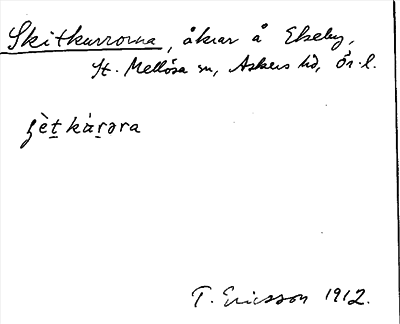 Skitkurrorna, åkrar å Ekeby,
St. Mellösa sn, Askers hd, Ör. l.
T. Ericsson 1912.